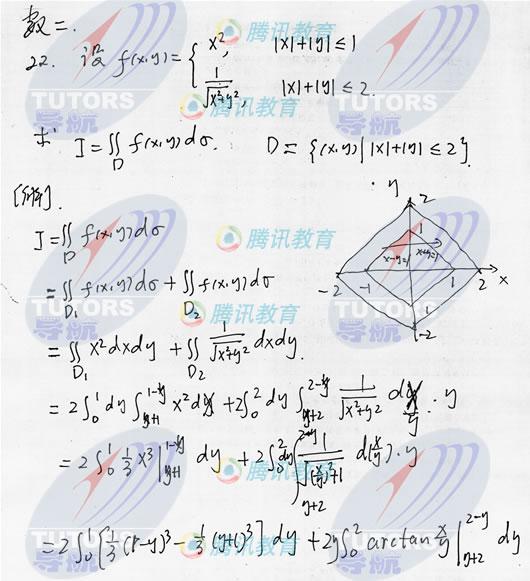 数二.
22. 设 f(x,y) = { x², |x|+|y| ≤ 1
1/√(x²+y²), |x|+|y| ≤ 2.
求 I = ∬_D f(x,y)dσ. D = {(x,y) | |x|+|y| ≤ 2}.
[解].
I = ∬_D f(x,y)dσ
= ∬_D₁ f(x,y)dσ + ∬_D₂ f(x,y)dσ
= ∬_D₁ x²dxdy + ∬_D₂ 1/√(x²+y²) dxdy.
= 2∫₀¹ dy ∫_{y+1}^{1-y} x²dx + 2∫₀² dy ∫_{y+2}^{2-y} 1/√(x²+y²) d x/y · y
= 2∫₀¹ ⅓x³ |_{y+1}^{1-y} dy + 2∫₀² dy ∫_{y+2}^{2-y} 1/√((x/y)²+1) d(x/y) · y
= 2∫₀¹ [⅓(1-y)³ - ⅓(y+1)³] dy + 2y∫₀² arctan x/y |_{y+2}^{2-y} dy
y
2
1
x+y=1
-2
-1
1
2
x
1
-2
腾讯教育
TUTORS
导航